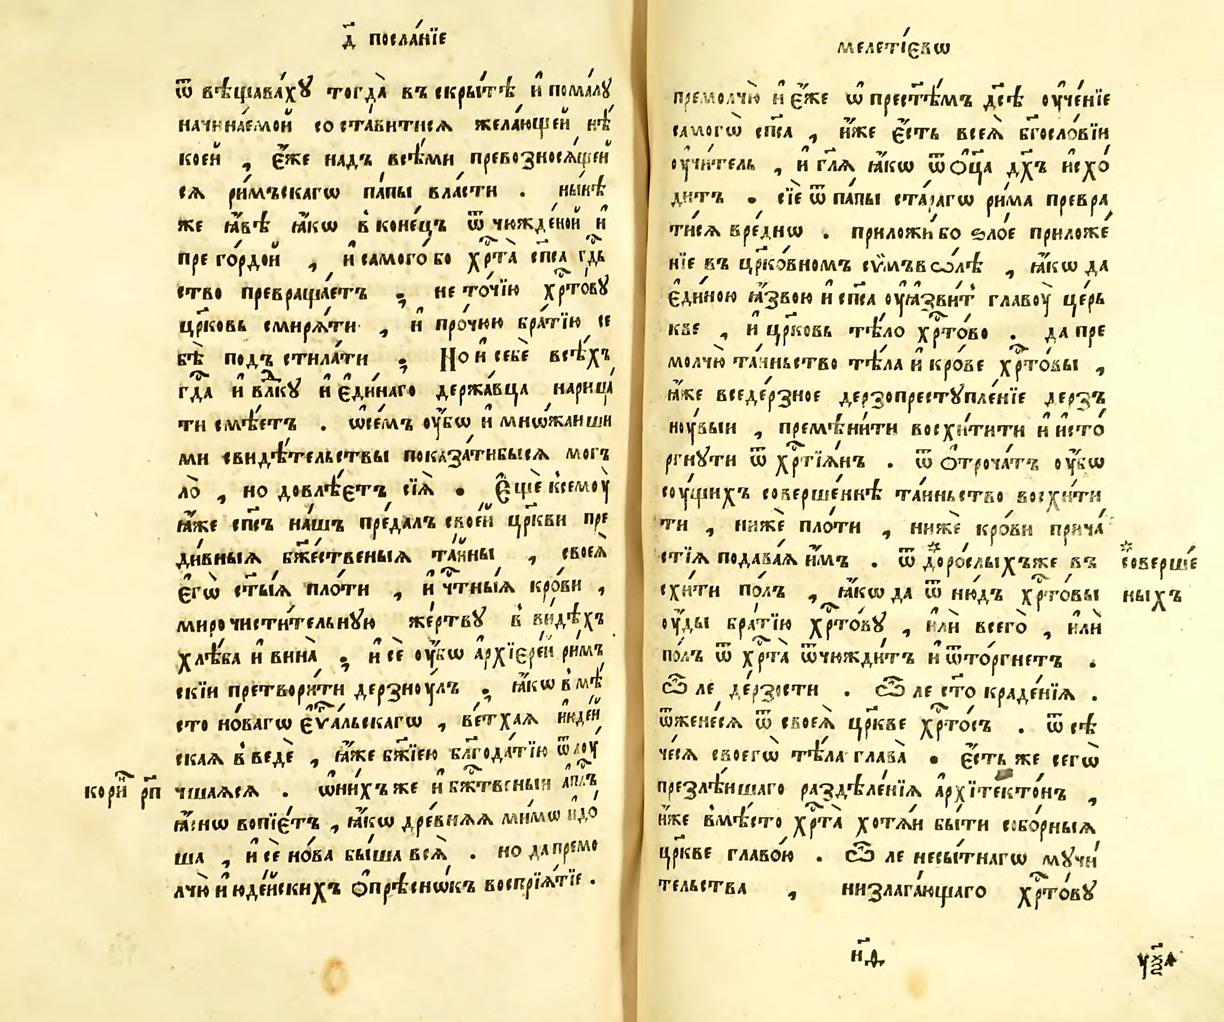 д҃ посла́нїе
ѿ вѣщава́хꙋ тогда̀ въ скры́тѣ и҆ пома́лꙋ
начина́емой со ста́витисѧ жела́ющей нѣ́
коей , є҆́же надъ всѣ́ми превозносѧ́щей
сѧ ри́мъскагѡ па́пы вла́сти . ны́нѣ
же ꙗ҆́вѣ ꙗ҆́кѡ в̾ коне́цъ ѿ чюжде́ной и҆
пре го́рдой , и҆ самого́ бо хрⷭ҇та̀ сп҃са гдⷭ҇ь
ство превраща́етъ ; не то́чїю хрⷭ҇то́вꙋ
цр҃ковь смирѧ́ти , и҆ про́чюю бра́тїю се
бѣ̀ подъ стила́ти ; Но и҆ себѐ всѣ́хъ
гдⷭ҇а и҆ влⷣкꙋ и҆ є҆ди́наго держа́вца нарица́
ти смѣ́етъ . ѡ҆се́мъ ᲂу҆́бѡ и҆ мнѡ́жаиши
ми свидѣ́тельствы показа́тибысѧ могъ
ло̀ , но довлѣ́етъ сїѧ̀ . Є҆щѐ ксемоу̀
ꙗ҆́же сп҃съ на́шъ пре́далъ свое́й цр҃кви пре
ди́вныѧ бж҃е́ственыѧ та́йны , своеѧ̀
є҆гѡ̀ ст҃ы́ѧ пло́ти , и҆ чⷭ҇тны́ѧ кро́ви ,
миро чисти́тельнꙋю же́ртвꙋ в̾ ви́дѣхъ
хлѣ́ба и҆ вина̀ ; и҆ сѐ ᲂу҆́бѡ а҆рхїере́й ри́мъ
скїи претвори́ти дерзноу́лъ , ꙗ҆́кѡ в̾ мѣ́
сто но́вагѡ є҆ѵⷢ҇а́льскагѡ , ве́тхаѧ и҆юде́й
скаѧ в̾ ведѐ , ꙗ҆́же бж҃їею блг҃ода́тїю ѿлоу
чшаѧсѧ . ѡ҆ни́хъ же и҆ бж҃твеныи а҆пⷭ҇лъ
кори́нⷴ҇ рп
ꙗ҆́сно вопїе́тъ , ꙗ҆́кѡ дре́внѧѧ ми́мѡ и҆до́
ша , и҆ сѐ но́ва бы́ша всѧ̀ . но да премо
лчю̀ и҆ юде́йскихъ ѻ҆прѣ́снѡкъ воспрїѧ́тїе .
мелетїевѡ
премолчю̀ и҆ є҆́же ѡ҆ прест҃ѣ́мъ дс҃ѣ ᲂу҆че́нїе
самогѡ̀ сп҃са , и҆́же є҆́сть всеѧ̀ бг҃осло́вїи
ᲂу҆чи́тель , и҆ гл҃ѧ ꙗ҆́кѡ ѿ ѻ҆ц҃а дх҃ъ и҆схо́
дитъ . сїѐ ѿ па́пы ста́рагѡ ри́ма превра
ти́сѧ вре́днѡ . приложи́ бо ѕло́е приложе́
нїе въ цр҃ко́вномъ сѵ́мъвѡлѣ , ꙗ҆́кѡ да
є҆ди́ною ꙗ҆́звою и҆ сп҃са ᲂу҆ꙗ҆зви́т̾ главоу̀ це́рь
кве , и҆ цр҃ковь тѣ́ло хрⷭ҇то́во . да пре
молчю̀ та́иньство тѣ́ла и҆ кро́ве хрⷭ҇то́вы ,
ꙗ҆́же вседе́рзное дерзопреступле́нїе дерз̾
ноу́выи , премѣни́ти восхи́тити и҆ и҆сто́
ргнꙋти ѿ хрⷭ҇тїѧ́нъ . ѿ ѻ҆троча́тъ ᲂу҆́бѡ
соу́щихъ соверше́ннѣ та́иньство восхи́ти
ти , нижѐ пло́ти , нижѐ кро́ви прича́
стїѧ подава́ѧ и҆́мъ . ѿ *доро́слыхъже въ
*соверше́
ныхъ
схи́ти по́лъ , ꙗ҆́кѡ да ѿ ню́дъ хрⷭ҇то́вы
ᲂу҆́ды бра́тїю хрⷭ҇то́вꙋ , и҆лѝ всего̀ , и҆лѝ
по́лъ ѿ хрⷭ҇та̀ ѿчюжди́тъ и҆ ѿто́ргнетъ .
Ѽ ле де́рзости . Ѽ ле ст҃о краде́нїѧ .
ѿжене́сѧ ѿ своеѧ̀ цр҃кве хрⷭ҇то́съ . ѿ сѣ
че́сѧ своегѡ̀ тѣ́ла глава̀ . є҆́сть же сегѡ̀
презлѣ́ишаго раздѣле́нїѧ а҆рхїте́ктонъ ,
и҆́же в̾мѣ́сто хрⷭ҇та̀ хотѧ́и бы́ти собо́рныѧ
цр҃кве главо́ю . Ѽ ле несы́тнагѡ мꙋчи́
тельства , низлага́ющаго хрⷭ҇то́вꙋ